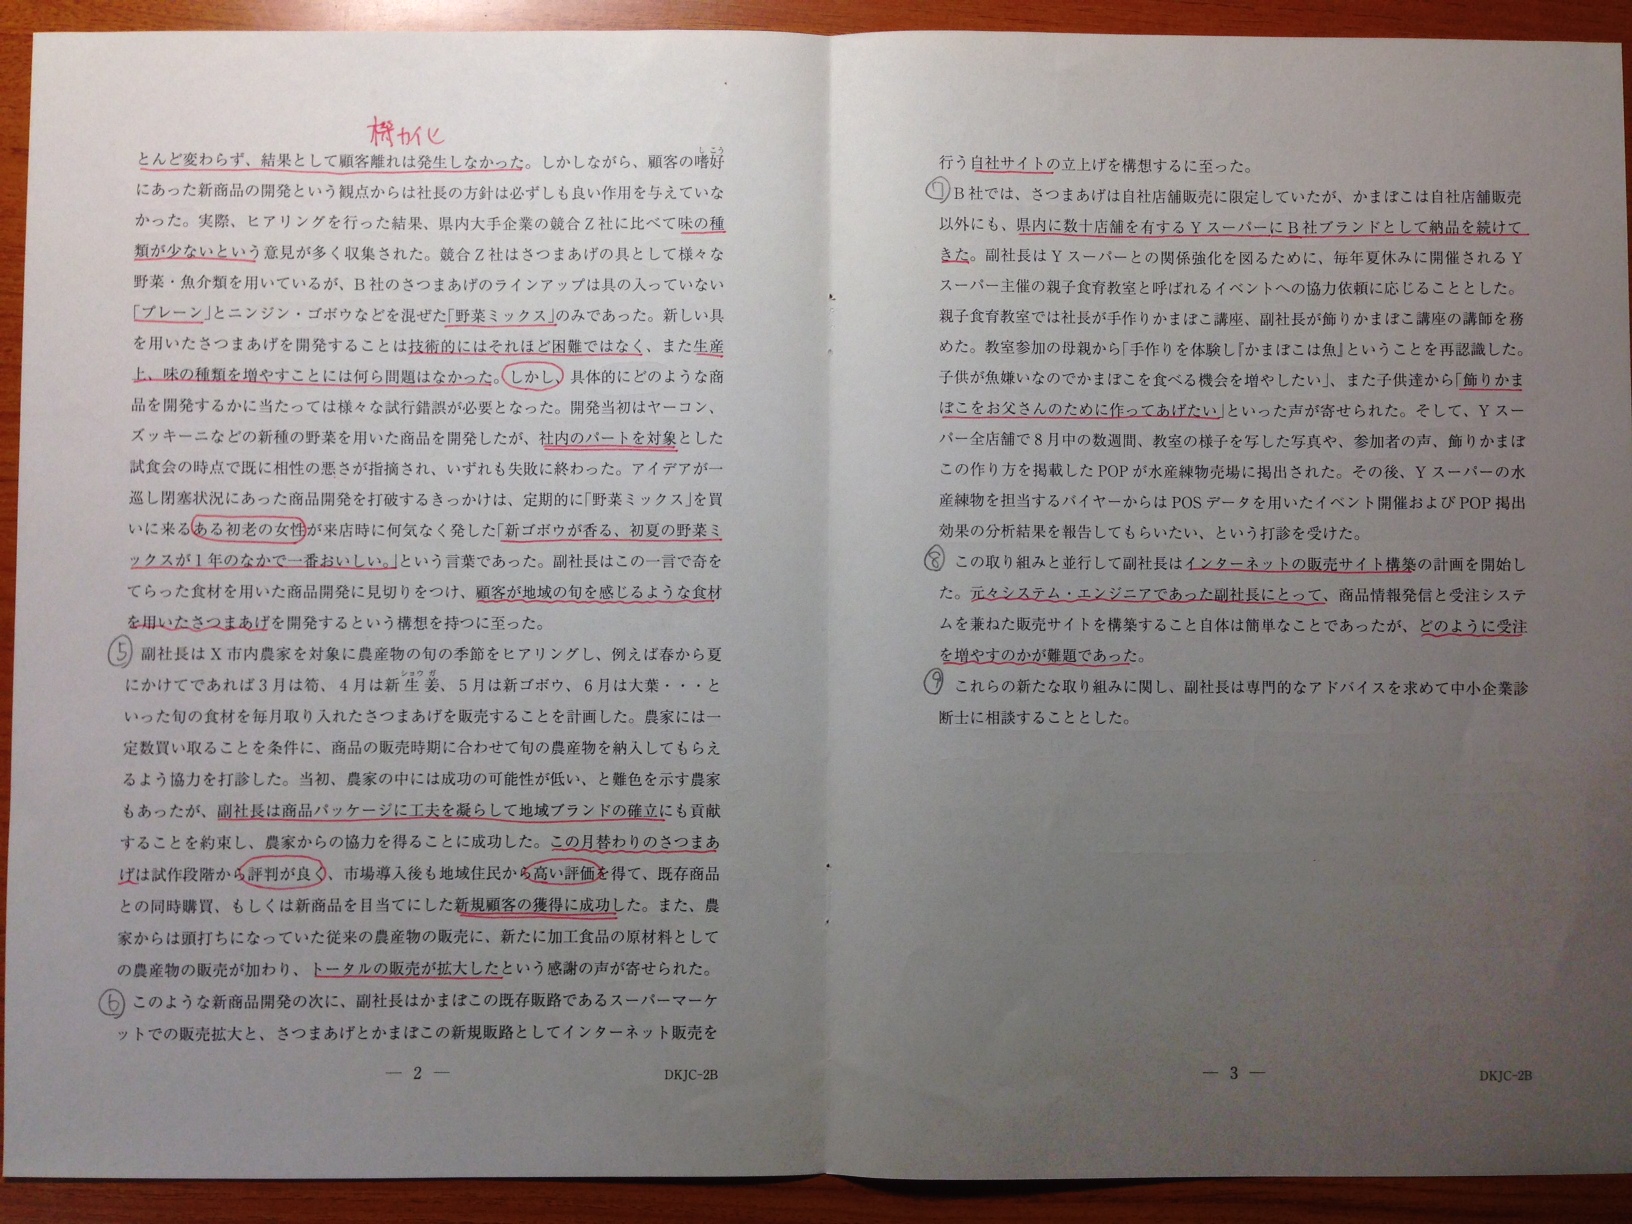 機カイ化
とんど変わらず、結果として顧客離れは発生しなかった。しかしながら、顧客の嗜好
しこう
にあった新商品の開発という観点からは社長の方針は必ずしも良い作用を与えていな
かった。実際、ヒアリングを行った結果、県内大手企業の競合Z社に比べて味の種
類が少ないという意見が多く収集された。競合Z社はさつまあげの具として様々な
野菜・魚介類を用いているが、B社のさつまあげのラインアップは具の入っていない
「プレーン」とニンジン・ゴボウなどを混ぜた「野菜ミックス」のみであった。新しい具
を用いたさつまあげを開発することは技術的にはそれほど困難ではなく、また生産
上、味の種類を増やすことには何ら問題はなかった。しかし、具体的にどのような商
品を開発するかに当たっては様々な試行錯誤が必要となった。開発当初はヤーコン、
ズッキーニなどの新種の野菜を用いた商品を開発したが、社内のパートを対象とした
試食会の時点で既に相性の悪さが指摘され、いずれも失敗に終わった。アイデアが一
巡し閉塞状況にあった商品開発を打破するきっかけは、定期的に「野菜ミックス」を買
いに来るある初老の女性が来店時に何気なく発した「新ゴボウが香る、初夏の野菜ミ
ックスが1年のなかで一番おいしい。」という言葉であった。副社長はこの一言で奇を
てらった食材を用いた商品開発に見切りをつけ、顧客が地域の旬を感じるような食材
を用いたさつまあげを開発するという構想を持つに至った。
⑤ 副社長はX市内農家を対象に農産物の旬の季節をヒアリングし、例えば春から夏
にかけてであれば3月は筍、4月は新生姜、5月は新ゴボウ、6月は大葉・・・と
ショウガ
いった旬の食材を毎月取り入れたさつまあげを販売することを計画した。農家には一
定数買い取ることを条件に、商品の販売時期に合わせて旬の農産物を納入してもらえ
るよう協力を打診した。当初、農家の中には成功の可能性が低い、と難色を示す農家
もあったが、副社長は商品パッケージに工夫を凝らして地域ブランドの確立にも貢献
することを約束し、農家からの協力を得ることに成功した。この月替わりのさつまあ
げは試作段階から評判が良く、市場導入後も地域住民から高い評価を得て、既存商品
との同時購買、もしくは新商品を目当てにした新規顧客の獲得に成功した。また、農
家からは頭打ちになっていた従来の農産物の販売に、新たに加工食品の原材料として
の農産物の販売が加わり、トータルの販売が拡大したという感謝の声が寄せられた。
⑥ このような新商品開発の次に、副社長はかまぼこの既存販路であるスーパーマーケ
ットでの販売拡大と、さつまあげとかまぼこの新規販路としてインターネット販売を
— 2 —
DKJC-2B
行う自社サイトの立上げを構想するに至った。
⑦ B社では、さつまあげは自社店舗販売に限定していたが、かまぼこは自社店舗販売
以外にも、県内に数十店舗を有するYスーパーにB社ブランドとして納品を続けて
きた。副社長はYスーパーとの関係強化を図るために、毎年夏休みに開催されるY
スーパー主催の親子食育教室と呼ばれるイベントへの協力依頼に応じることとした。
親子食育教室では社長が手作りかまぼこ講座、副社長が飾りかまぼこ講座の講師を務
めた。教室参加の母親から「手作りを体験し『かまぼこは魚』ということを再認識した。
子供が魚嫌いなのでかまぼこを食べる機会を増やしたい」、また子供達から「飾りかま
ぼこをお父さんのために作ってあげたい」といった声が寄せられた。そして、Yスー
パー全店舗で8月中の数週間、教室の様子を写した写真や、参加者の声、飾りかまぼ
この作り方を掲載したPOPが水産練物売場に掲出された。その後、Yスーパーの水
産練物を担当するバイヤーからはPOSデータを用いたイベント開催およびPOP掲出
効果の分析結果を報告してもらいたい、という打診を受けた。
⑧ この取り組みと並行して副社長はインターネットの販売サイト構築の計画を開始し
た。元々システム・エンジニアであった副社長にとって、商品情報発信と受注システ
ムを兼ねた販売サイトを構築すること自体は簡単なことであったが、どのように受注
を増やすのかが難題であった。
⑨ これらの新たな取り組みに関し、副社長は専門的なアドバイスを求めて中小企業診
断士に相談することとした。
— 3 —
DKJC-2B